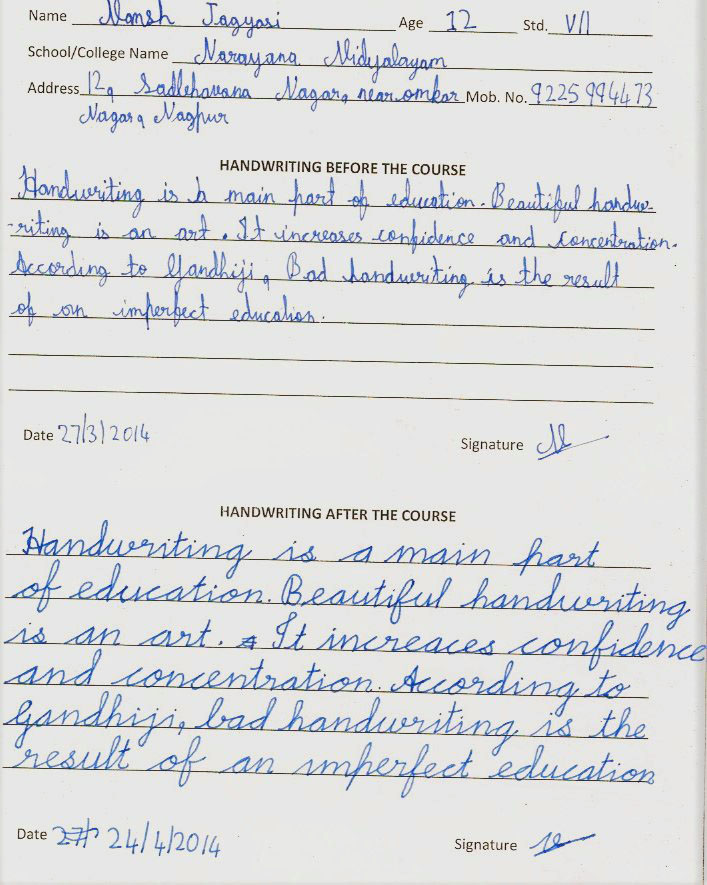 Name Vansh Jagyasi Age 12 Std. VII
School/College Name Narayana Vidyalayam
Address 12, Sadbhavana Nagar, near omkar Mob. No. 9225994473
Nagar, Nagpur
HANDWRITING BEFORE THE COURSE
Handwriting is a main part of education. Beautiful handw-
-riting is an art. It increases confidence and concentration.
According to Gandhiji, Bad handwriting is the result
of an imperfect education.
Date 27/3/2014 Signature
HANDWRITING AFTER THE COURSE
Handwriting is a main part
of education. Beautiful handwriting
is an art. It increaces confidence
and concentration. According to
Gandhiji, bad handwriting is the
result of an imperfect education
Date 24/4/2014 Signature